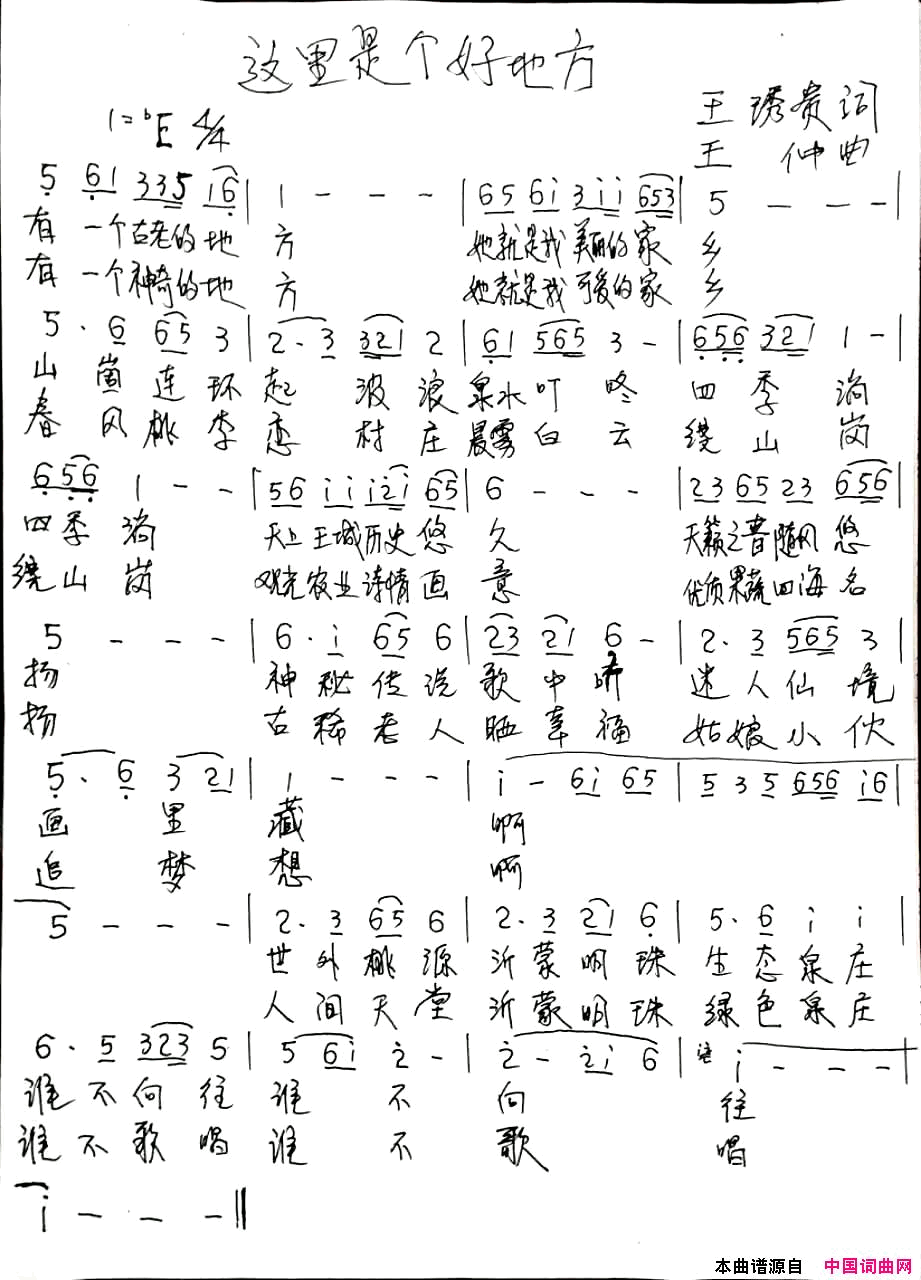 这里是个好地方
王琇贵词
1=ᵇE 4/4
王 仲曲
5 61 335 16 | 1 - - - | 65 6i 3ii 653 | 5 - - - |
有 一个古老的地 方 她就是我美丽的家 乡
有 一个神奇的地 方 她就是我可爱的家 乡
5· 6 65 3 | 2· 3 321 2 | 61 565 3 - | 656 321 1 - |
山 峦 连 环 起 波 浪 泉水叮 咚 四 季 淌
春 风 桃 李 恋 村 庄 晨雾白 云 绕 山 岗
656 1 - - | 56 ii i2i 65 | 6 - - - | 23 65 23 656 |
四季 淌 天上王城历史悠 久 天籁之音随风 悠
绕山 岗 观光农业诗情画 意 优质果蔬四海 名
5 - - - | 6· i 65 6 | 23 21 6 - | 2· 3 565 3 |
扬 神 秘 传 说 歌 中 迷 人 仙 境
扬 古 稀 老 人 晒 幸 福 姑 娘 小 伙
5· 6 3 21 | 1 - - - | i - 6i 65 | 5 3 5 656 i6 |
画 里 藏 啊
追 梦 想 啊
5 - - - | 2· 3 65 6 | 2· 3 21 6 | 5· 6 i i |
世 外 桃 源 沂 蒙 明 珠 生 态 泉 庄
人 间 天 堂 沂 蒙 明 珠 绿 色 泉 庄
6· 5 323 5 | 5 6i 2 - | 2 - 2i 6 | i - - - |
谁 不 向 往 谁 不 向 往
谁 不 歌 唱 谁 不 歌 唱
i - - - ‖
本曲谱源自 中国词曲网